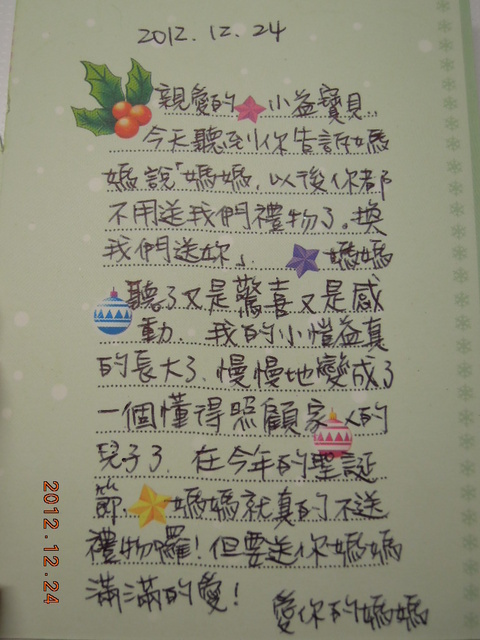 2012.12.24
親愛的 小益寶貝..
今天聽到你告訴媽
媽說「媽媽,以後你都
不用送我們禮物了。換
我們送妳」. 媽媽
聽了又是驚喜又是感
動. 我的小愷益真
的長大了、慢慢地變成了
一個懂得照顧家人的
兒子了. 在今年的聖誕
節. 媽媽就真的不送
禮物囉!但要送你媽媽
滿滿的愛!
愛你的媽媽
2012.12.24